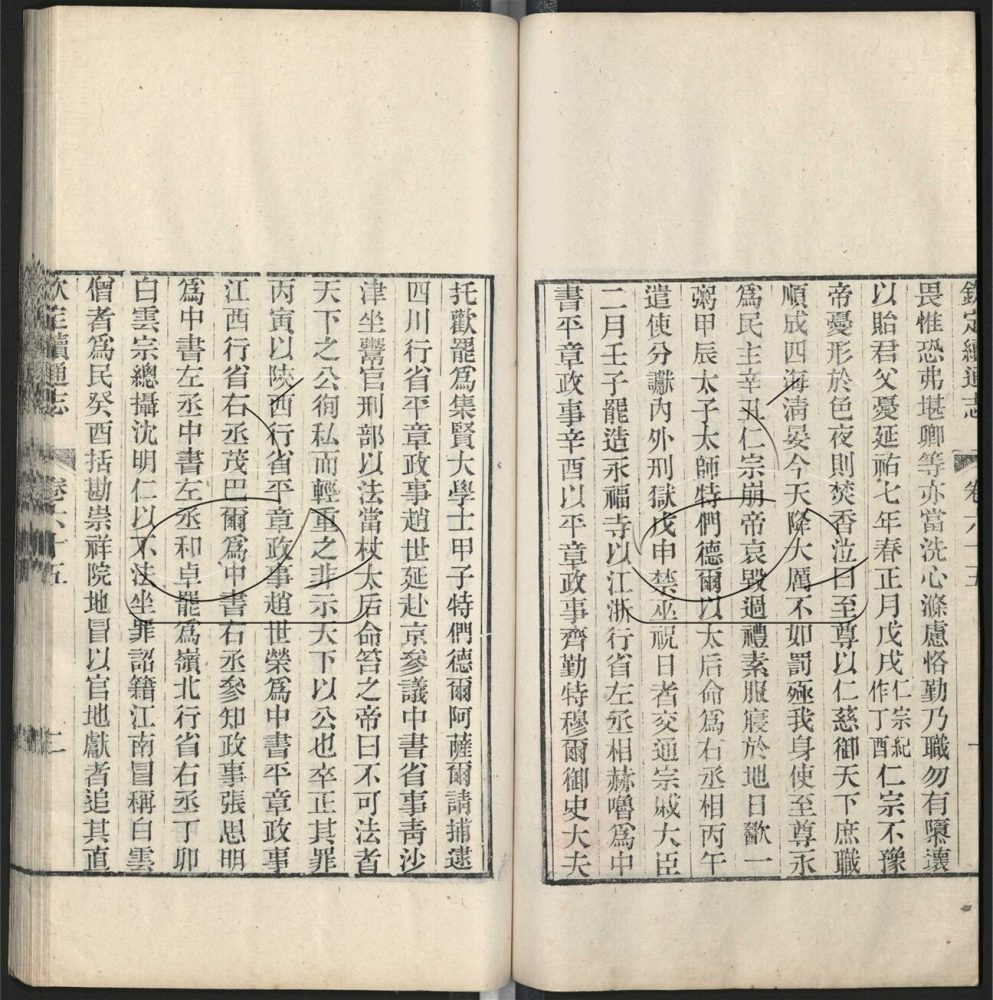 欽定續通志 卷六十五 一
畏惟恐弗堪卿等亦當洗心滌慮恪勤乃職勿有隳壞
以貽君父憂延祐七年春正月戊戌仁宗紀作丁酉仁宗不豫
帝憂形於色夜則焚香泣曰至尊以仁慈御天下庶職
順成四海清晏今天降大厲不如罰殛我身使至尊永
爲民主辛丑仁宗崩帝哀毀過禮素服寢於地日歠一
粥甲辰太子太師特們德爾以太后命爲右丞相丙午
遣使分讞內外刑獄戊申禁巫祝日者交通宗戚大臣
二月壬子罷造永福寺以江浙行省左丞相赫嚕爲中
書平章政事辛酉以平章政事齊勤特穆爾御史大夫
托歡罷爲集賢大學士甲子特們德爾阿薩爾請捕逮
四川行省平章政事趙世延赴京參議中書省事靑沙
津坐鬻官刑部以法當杖太后命笞之帝曰不可法者
天下之公徇私而輕重之非示天下以公也卒正其罪
丙寅以陝西行省平章政事趙世榮爲中書平章政事
江西行省右丞茂巴爾爲中書右丞參知政事張思明
爲中書左丞中書左丞和卓罷爲嶺北行省右丞丁卯
白雲宗總攝沈明仁以不法坐罪詔籍江南冒稱白雲
僧者爲民癸酉括勘崇祥院地冒以官地獻者追其直
欽定續通志 卷六十五 二